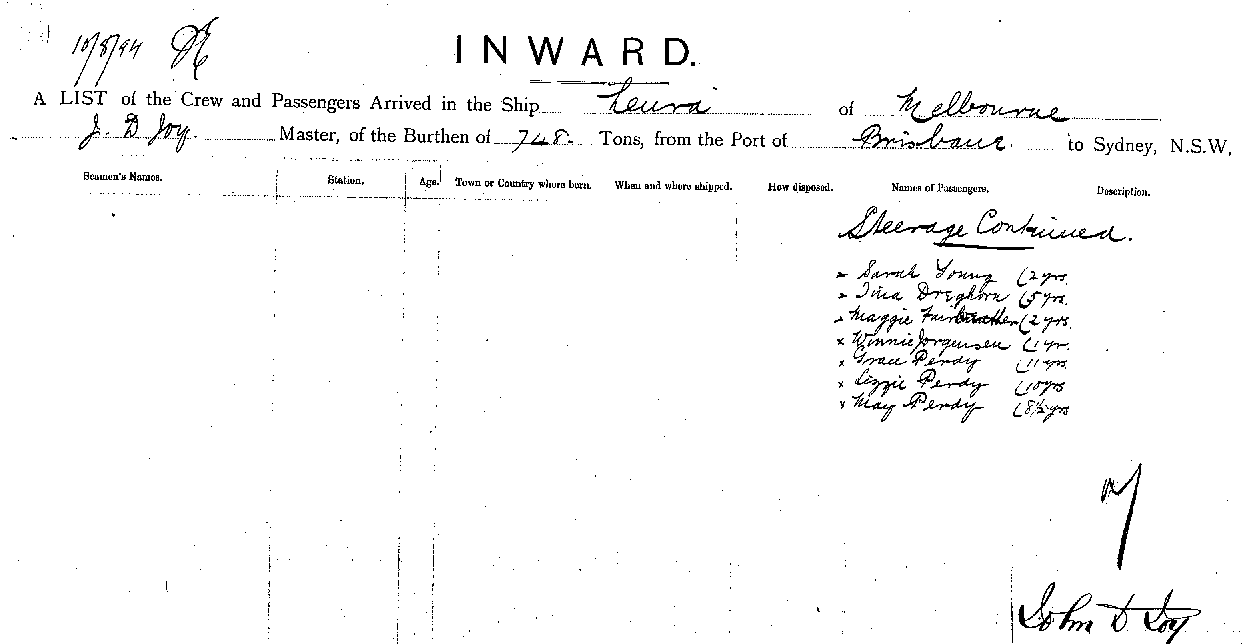 10/8/94
INWARD.
A LIST of the Crew and Passengers Arrived in the Ship Leura of Melbourne
J. D Joy. Master, of the Burthen of 748. Tons, from the Port of Brisbane. to Sydney, N.S.W,
Seamen's Names. Station. Age. Town or Country where born. When and where shipped. How disposed. Names of Passengers. Description.
Steerage Continued.
x Sarah Young (2 yrs.
x Tina Dreghorn (5 yrs.
x Maggie (2 yrs.
x Winnie Jorgensen (1 yr.
x Grace Perdy (11 yrs
x Lizzie Perdy (10 yrs
x May Perdy (8½ yrs
7
John D Joy